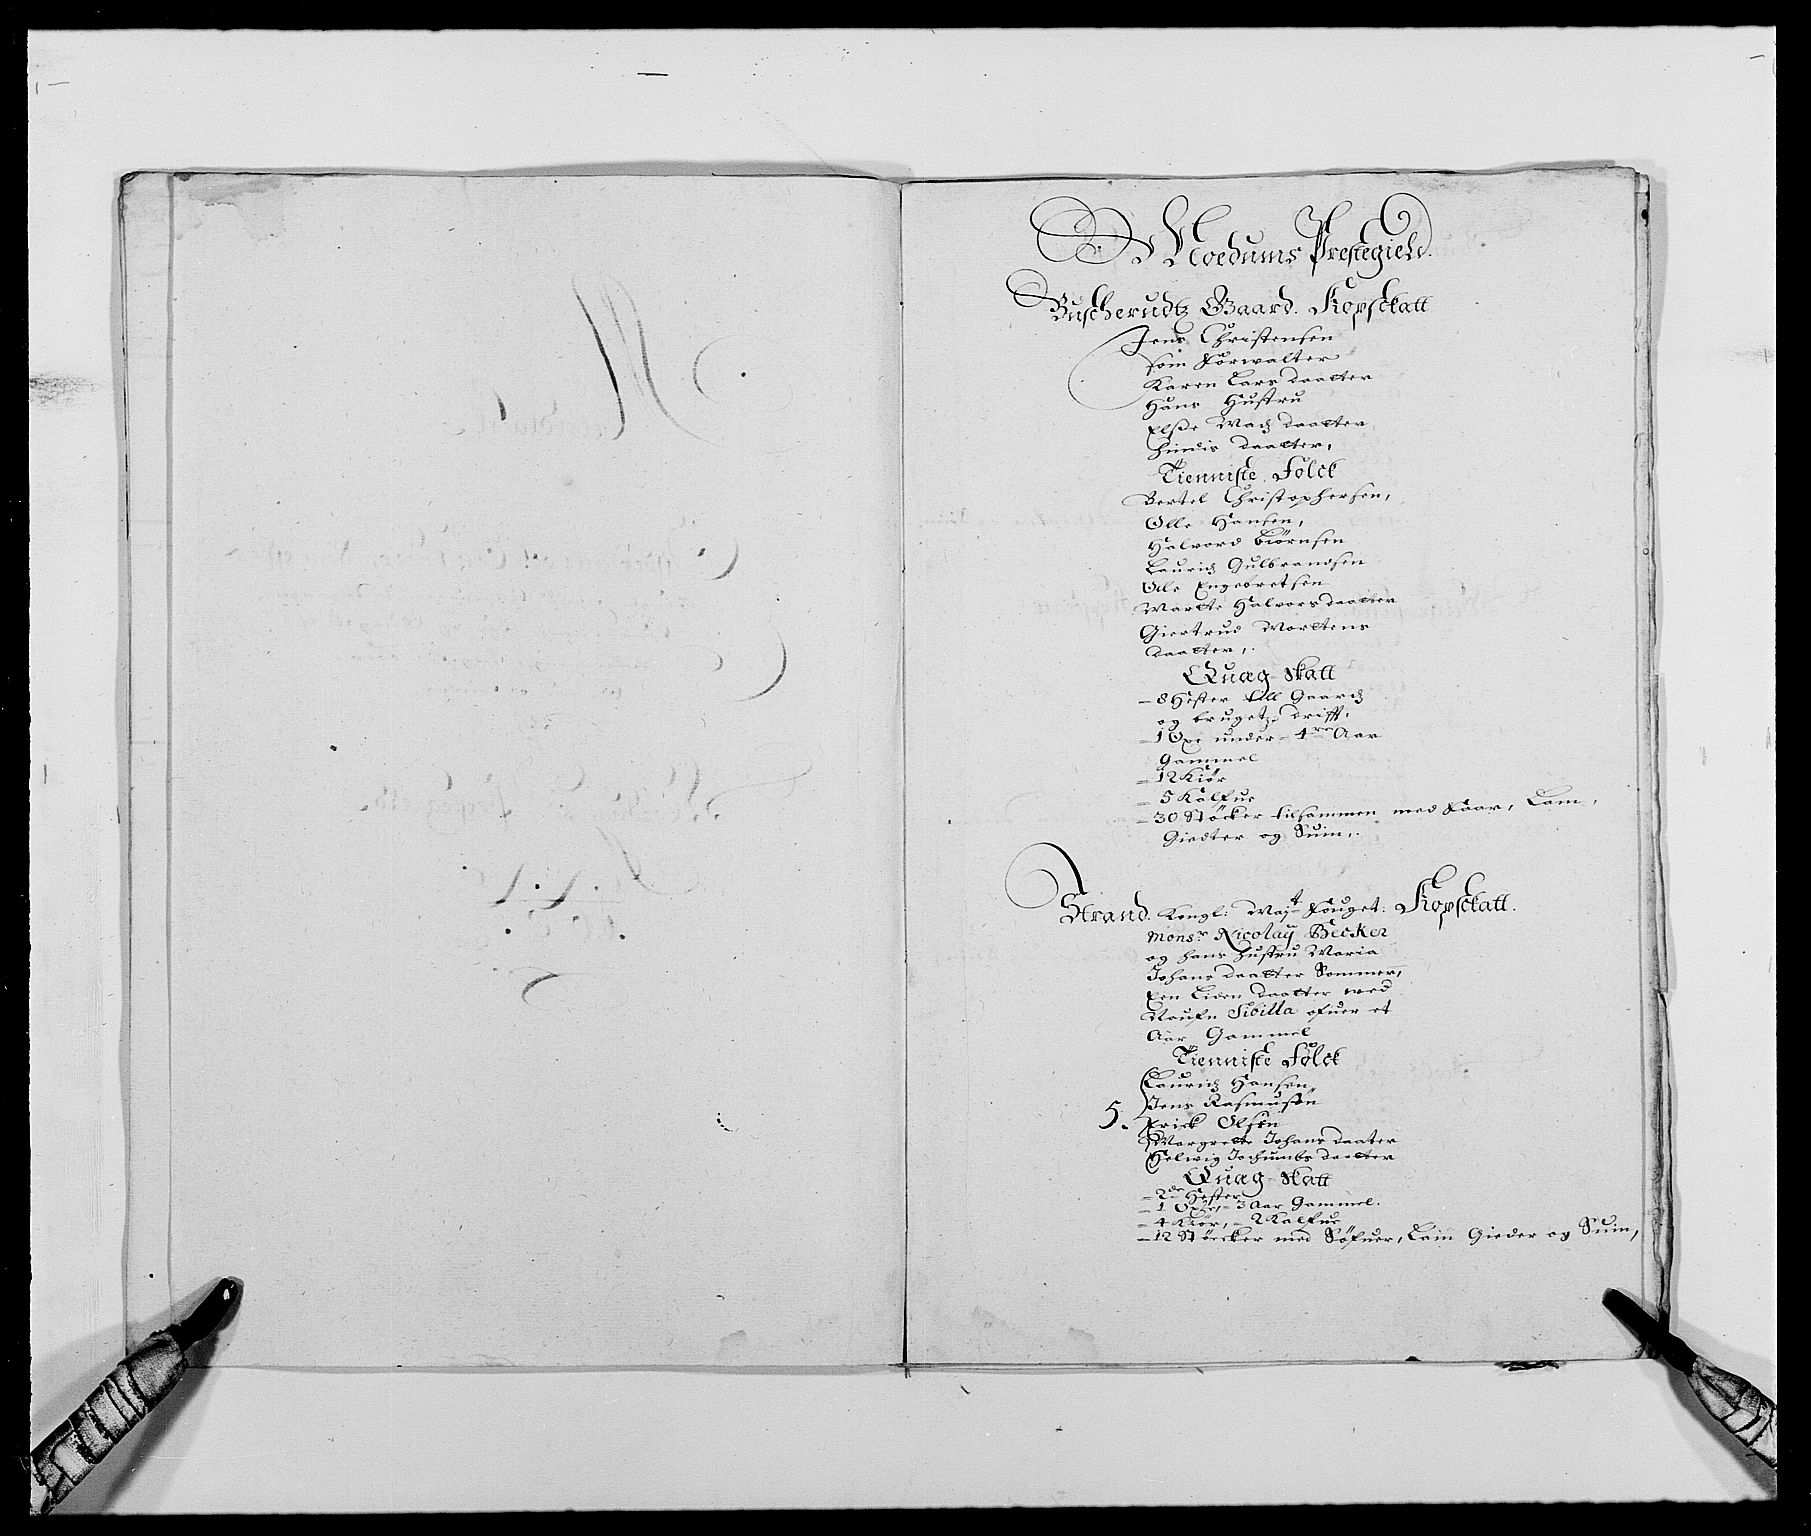 Moedums Prestegield.
Buscherudtz Gaard. Kopsckatt
Jens Christensen
som Forwalter
Karen Lars daatter
Hans Hustru
Elsße Mads daatter
hindis daatter,
Tienniste Folck
Bertel Christophersen,
Olle Hansen,
Halvord Biørnsen
Lauridz Gulbrandsen
Olle Engebretsen
Marte Halvors daatter
Giertrud Mortens
daatter,
Quæg Skatt
- 8 Hester till Gaardz
og brugetz drifft,
- 1 Oxe under - 4re Aar
Gammel
- 12 Kiør
- 5 Kalfue
- 30 Støcker tilsammen med Faar, Lam,
Giedter og Suin,
Strand. Kongl: Mayt Fouget: Kopsckatt.
Monsr Nicolay Becker
og hans hustru Maria
Johans daatter Sommer,
Een Liden daatter med
Naufn Sibilla ofuer et
Aar Gammel
Tienniste Folck
Lauridz Hansen
Jens Rasmusøn
5. Erick Olsøn
Margrette Johans daater
Helwig Jochumbs daatter
Quæg Skatt
- 2de Hester
- 1 Oxe, - 3 Aar Gammel.
- 4 Kiør, - 2 Kalfue
- 12 Støcker med Søfuer, Lam Gieder og Suin,